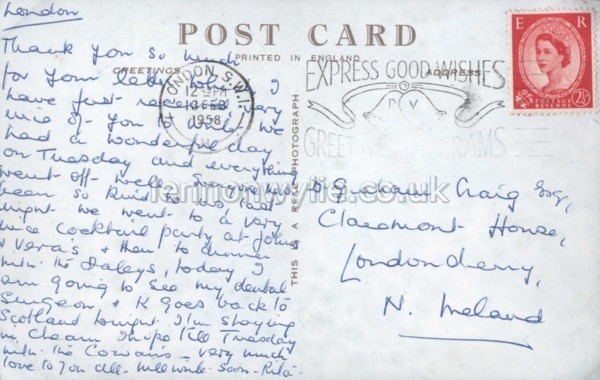 London
POST CARD
PRINTED IN ENGLAND
GREETINGS
ADDRESS
Thank you so much
for your letter which I
have just received, very
nice of you to write. We
had a wonderful day
on Tuesday and everything
went off well. Everyone
been so kind to us last
night we went to a very
nice Cocktail party at John
& Vera's & then to dinner
with the Daleys, today I
am going to see my dental
Surgeon & K goes back to
Scotland tonight. I'm staying
in Cheam I hope till Tuesday
with the Cowans - very much
love to you all - will write soon - Rita.
LONDON S.W.1.
12 PM
13 FEB
1958
EXPRESS GOOD WISHES
BY
GREETINGS TELEGRAMS
E R
POSTAGE REVENUE
2½D
THIS IS A REAL PHOTOGRAPH
Graham Craig Esq,
Claremont House,
Londonderry,
N. Ireland
lennonwylie.co.uk